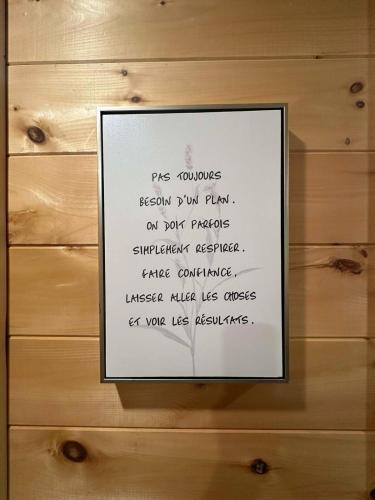 PAS TOUJOURS
BESOIN D'UN PLAN.
ON DOIT PARFOIS
SIMPLEMENT RESPIRER.
FAIRE CONFIANCE,
LAISSER ALLER LES CHOSES
ET VOIR LES RÉSULTATS.